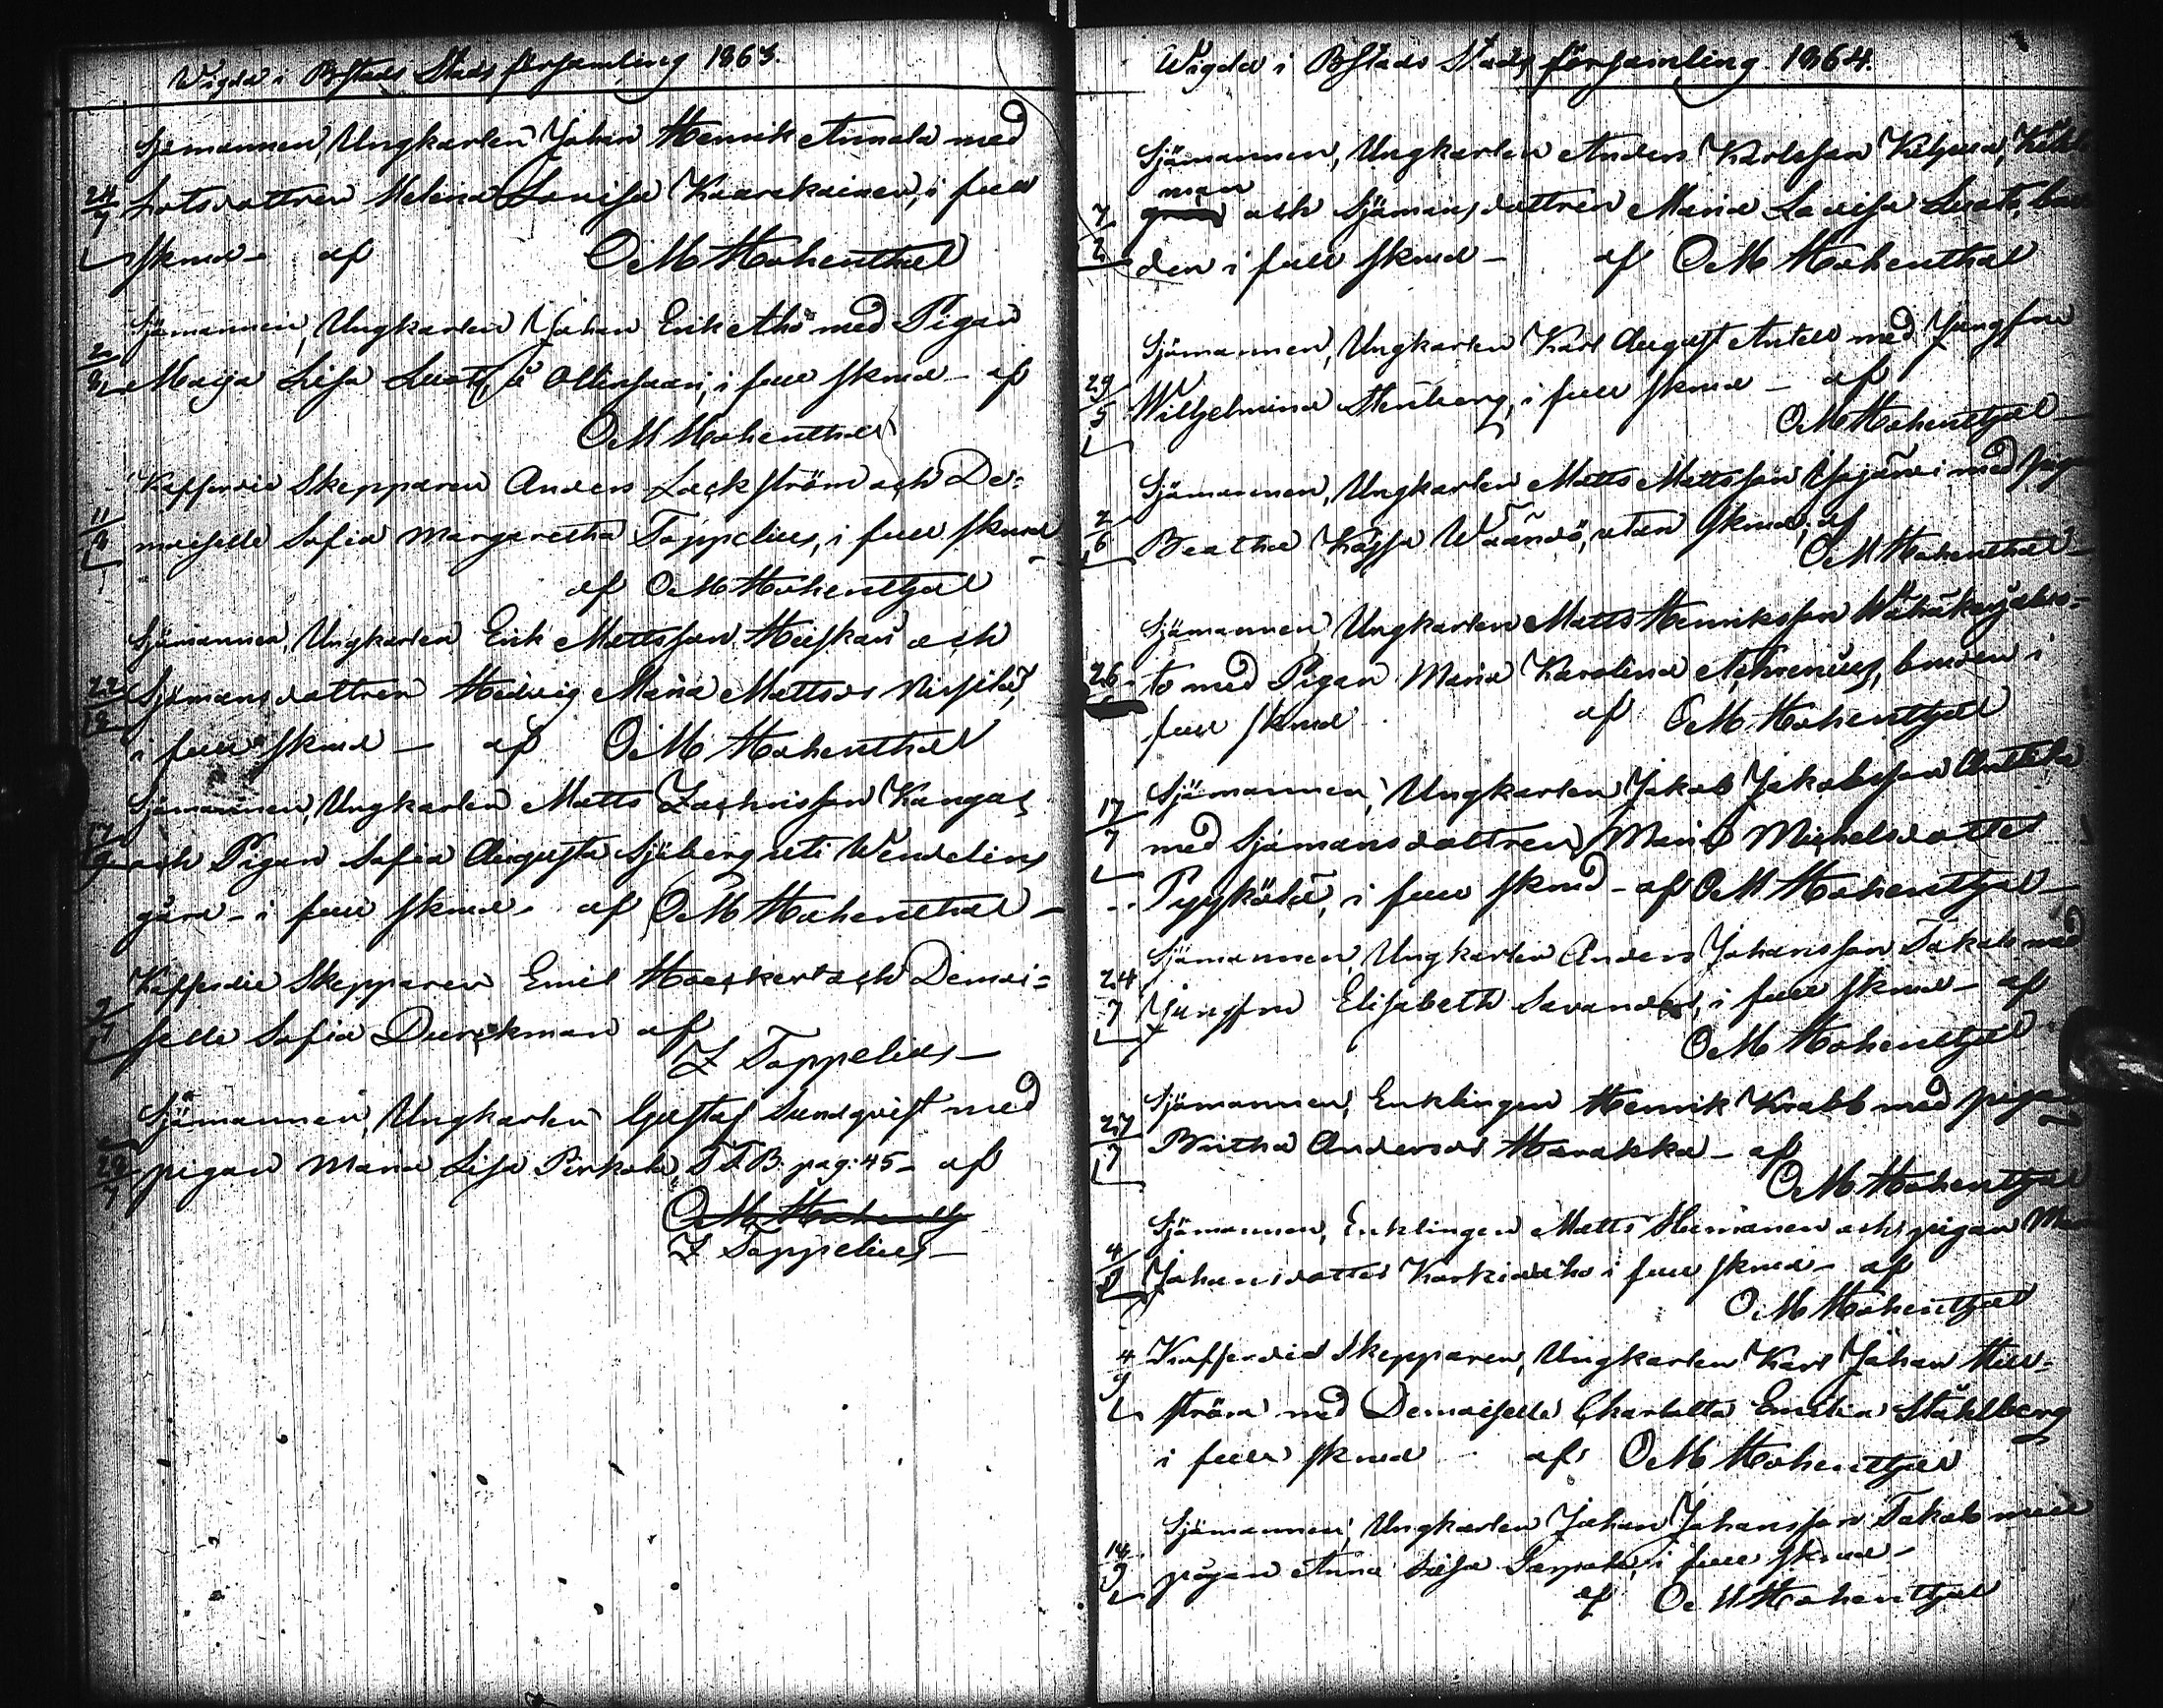 Wigda i BStads Stads församling 1863.
Sjömannen, Ungkarlen Johan Henrik Annala med
24/7 Lotsdottren Helena Lovisa Kaarakainen, i full
skrud - af O M Hohenthal
Sjömannen, Ungkarlen Johan Erik Aho med Pigan
2/8 Maija Lisa Luoto å Ollinsaari, i full skrud - af
O M Hohenthal
Kofferdie Skepparen Anders Lackström och De-
11/8 moiselle Sofia Margaretha Toppelius, i full skrud -
af O M Hohenthal
Sjömannen, Ungkarlen Erik Mattsson och
22/12 Sjömansdottren Hedvig Maria Mattsdr
i full skrud - af O M Hohenthal
Sjömannen, Ungkarlen Matts Zachrisson Kangas
och Pigan Sofia Augusta Sjöberg uti Wendelins
gård - i full skrud - af O M Hohenthal -
Kofferdie Skepparen Emil Hoeckert och Demoi-
selle Sofia Durchman af
Z Toppelius -
Sjömannen, Ungkarlen Gustaf Sundqvist med
29/7 pigan Maria Lisa Pirkola, T.B. pag: 45 - af
O M Hohenth
Z Toppelius -
Wigda i BStads Stads församling 1864.
Sjömannen, Ungkarlen Anders Karlsson
man
7/2 och Sjömansdottren Maria Lovisa Luoto,
den i full skrud - af O M Hohenthal
Sjömannen, Ungkarlen Karl August Antell med Jungfru
29/5 Wilhelmina Stenberg, i full skrud - af
O M Hohenthal -
Sjömannen, Ungkarlen Matts Mattsson med
2/6 Beatha Kajsa utan skrud, af
O M Hohenthal -
Sjömannen, Ungkarlen Matts Henriksson
26 to med Pigan Maria Karolina bruden i
full skrud af O M Hohenthal
Sjömannen, Ungkarlen Jakob Jakobsson Anttila
17/7 med Sjömansdottren Maria Michelsdotter
i full skrud - af O M Hohenthal -
Sjömannen, Ungkarlen Anders Johansson Takalo med
24/7 Jungfru Elisabeth Savander, i full skrud - af
O M Hohenthal
Sjömannen, Enklingen Henrik Krabb med pigan
27/7 Britha Andersdr Harakka - af
O M Hohenthal
Sjömannen, Enklingen Matts och pigan
Johansdotter i full skrud - af
O M Hohenthal
4/9 Kofferdie Skepparen, Ungkarlen Karl Johan Hell-
ström med Demoiselle Charlotta Emilia Ståhlberg
i full skrud - af O M Hohenthal
Sjömannen, Ungkarlen Johan Johansson Takalo med
14/9 pigan Anna Lisa i full skrud -
af O M Hohenthal